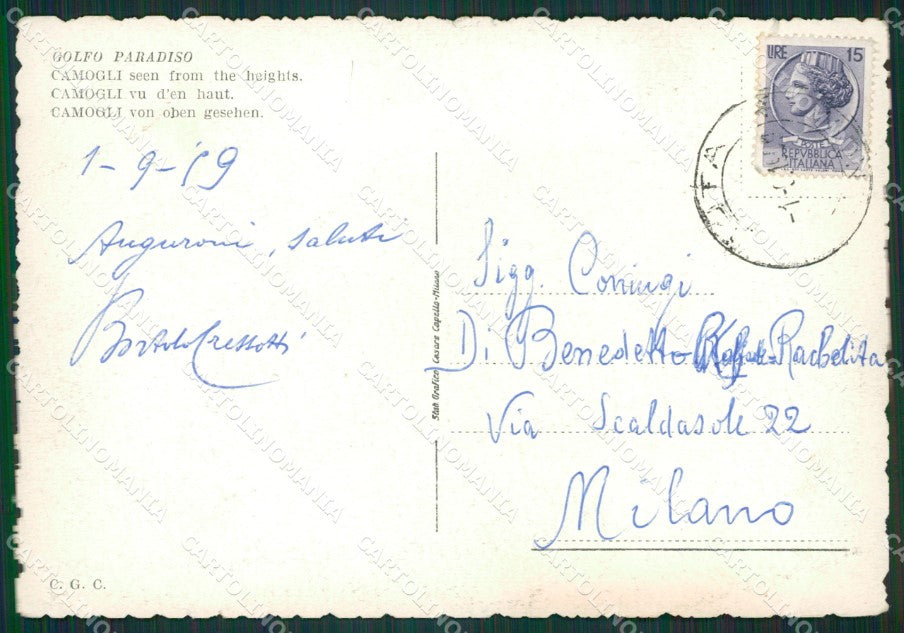 GOLFO PARADISO
CAMOGLI seen from the heights.
CAMOGLI vu d'en haut.
CAMOGLI von oben gesehen.
1-9-'59
Auguroni, saluti
Bortolo Cressotti
C. G. C.
Stab Grafico Cesare Capello-Milano
LIRE 15
POSTE
REPVBBLICA
ITALIANA
Sigg. Coniugi
Di Benedetto
Via Scaldasole 22
Milano
CARTOLINOMANIA